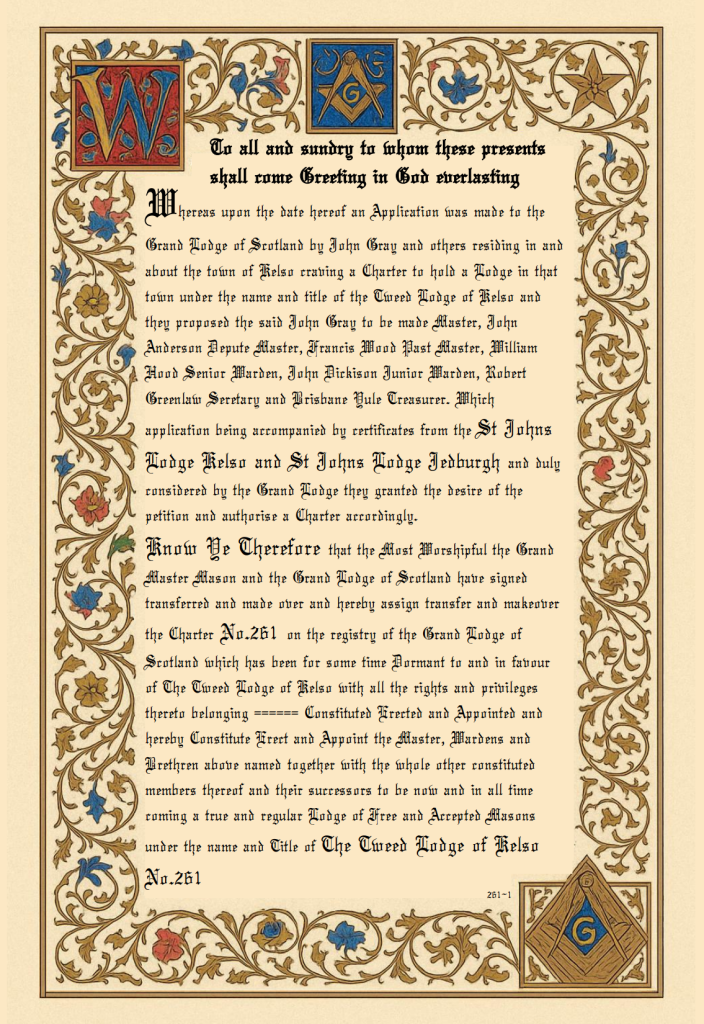 W
G
To all and sundry to whom these presents
shall come Greeting in God everlasting
Whereas upon the date hereof an Application was made to the
Grand Lodge of Scotland by John Gray and others residing in and
about the town of Kelso craving a Charter to hold a Lodge in that
town under the name and title of the Tweed Lodge of Kelso and
they proposed the said John Gray to be made Master, John
Anderson Depute Master, Francis Wood Past Master, William
Hood Senior Warden, John Dickison Junior Warden, Robert
Greenlaw Seretary and Brisbane Yule Treasurer. Which
application being accompanied by certificates from the St Johns
Lodge Kelso and St Johns Lodge Jedburgh and duly
considered by the Grand Lodge they granted the desire of the
petition and authorise a Charter accordingly.
Know Ye Therefore that the Most Worshipful the Grand
Master Mason and the Grand Lodge of Scotland have signed
transferred and made over and hereby assign transfer and makeover
the Charter No.261 on the registry of the Grand Lodge of
Scotland which has been for some time Dormant to and in favour
of The Tweed Lodge of Kelso with all the rights and privileges
thereto belonging ====== Constituted Erected and Appointed and
hereby Constitute Erect and Appoint the Master, Wardens and
Brethren above named together with the whole other constituted
members thereof and their successors to be now and in all time
coming a true and regular Lodge of Free and Accepted Masons
under the name and Title of The Tweed Lodge of Kelso
No.261
261~1
G